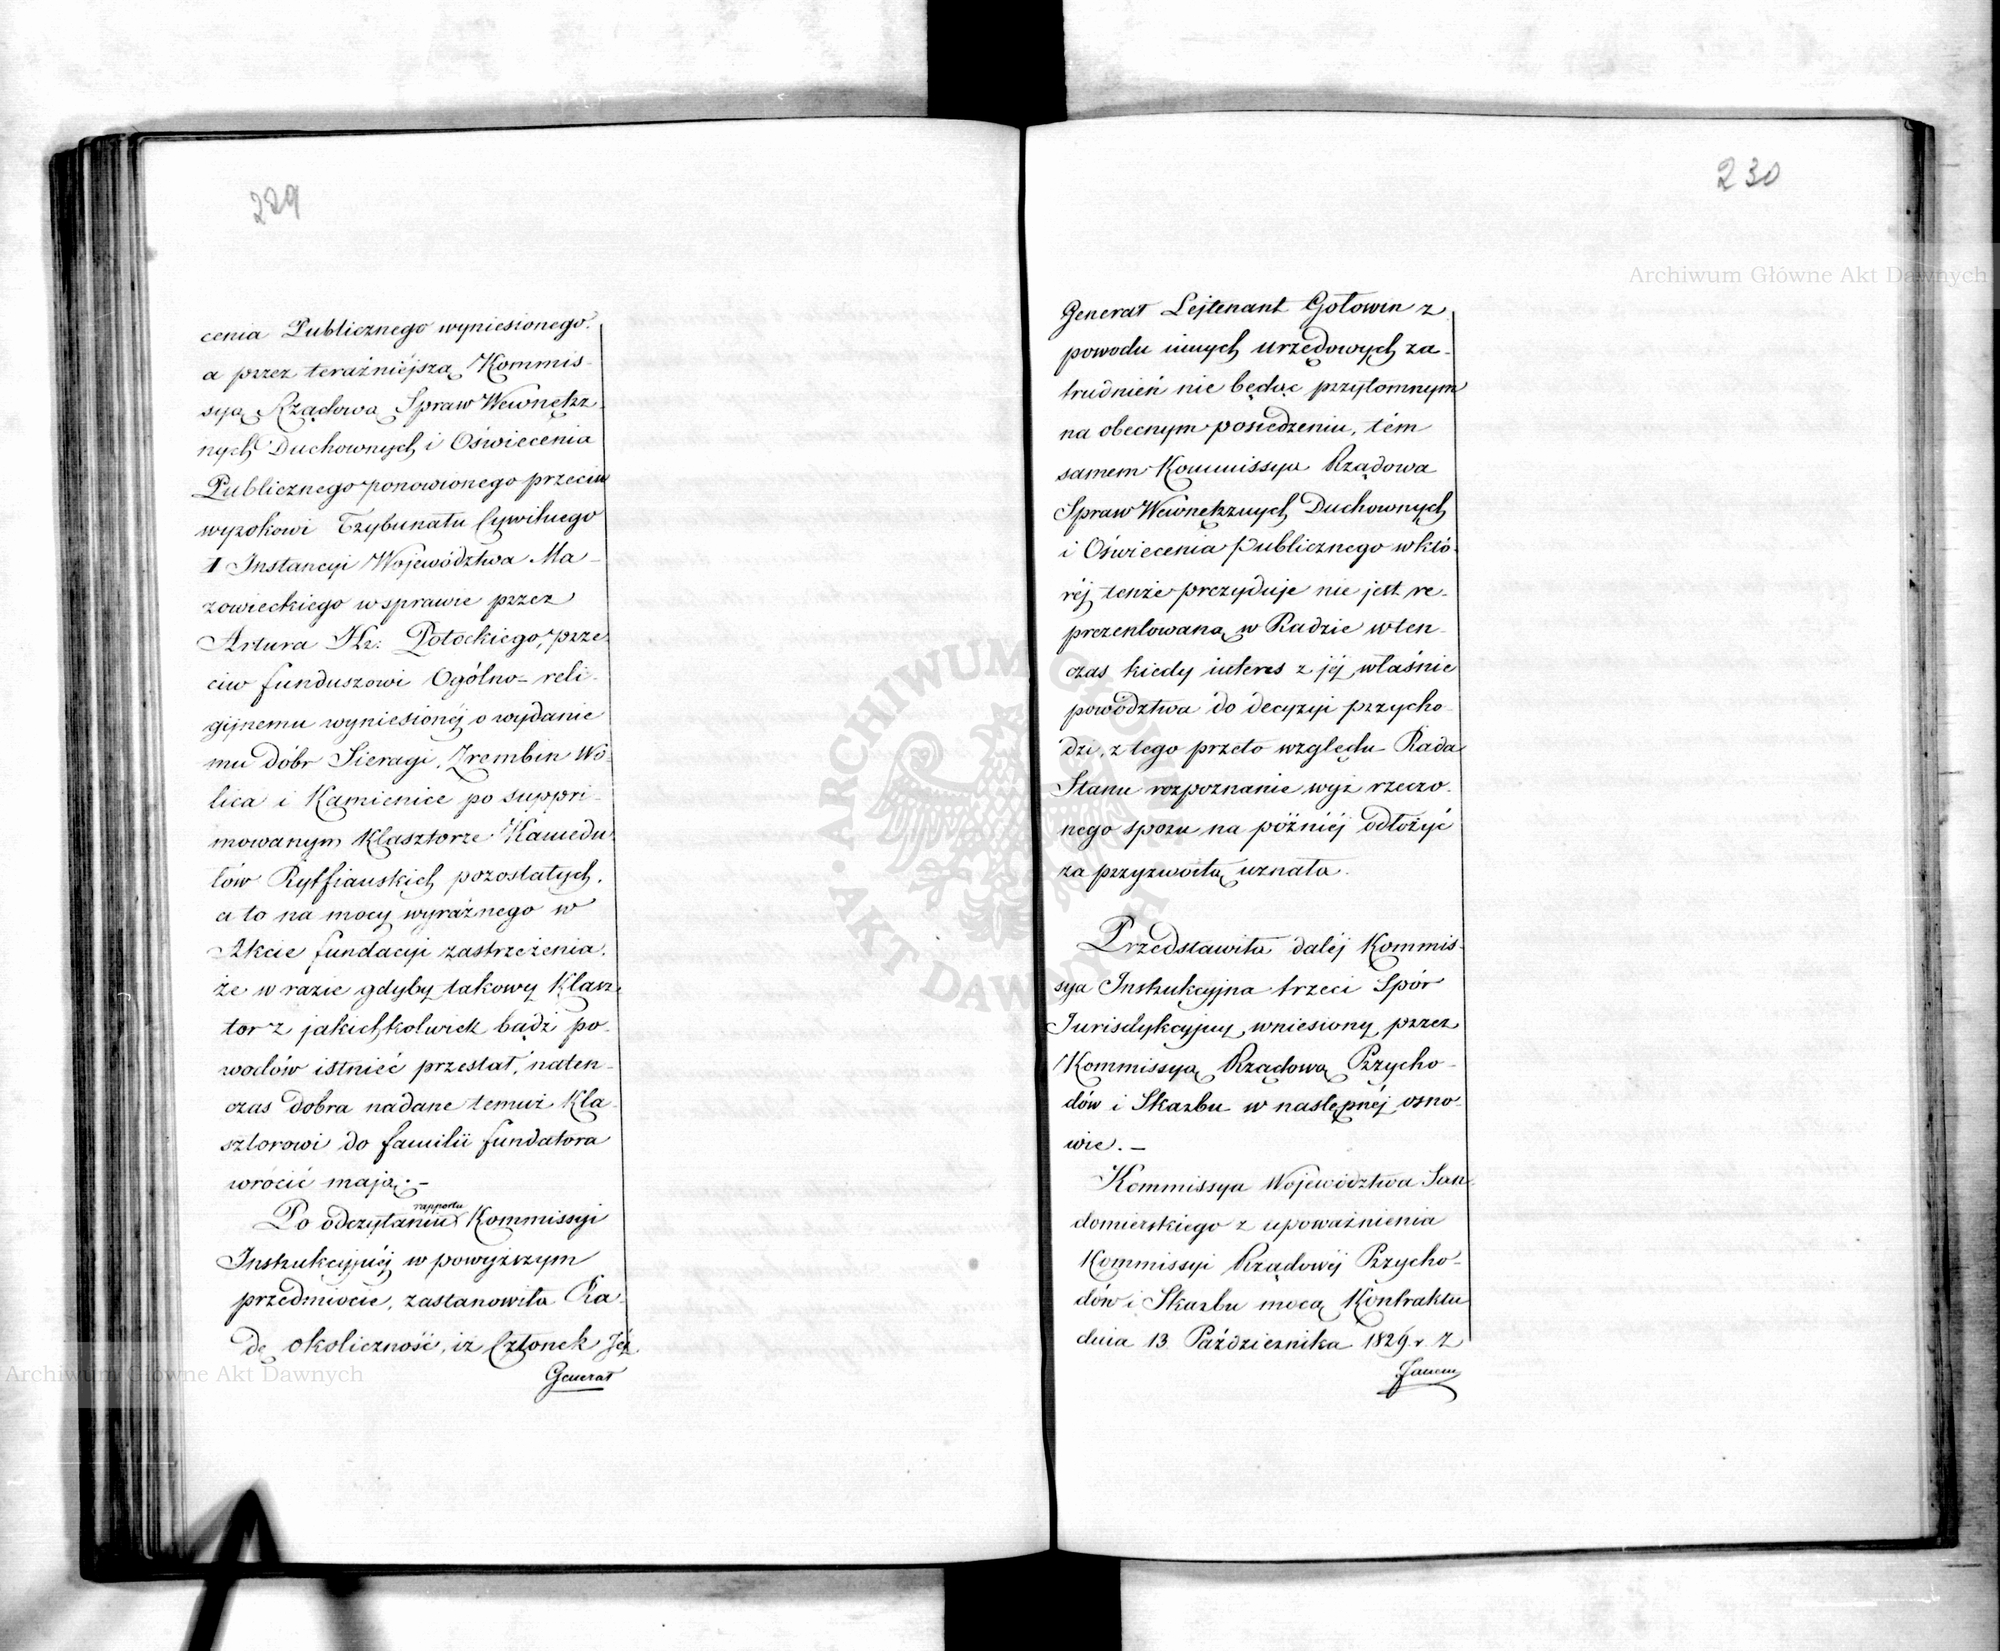 229
cenia Publicznego wyniesionego.
a przez teraźniéjszą Kommis-
syą Rządową Spraw Wewnętrz-
nych Duchownych i Oświecenia
Publicznego ponowionego przeciw
wyrokowi Trybunału Cywilnego
I Instancyi Województwa Ma-
zowieckiego w sprawie przez
Artura Hr: Potockiego, prze-
ciw funduszowi Ogólno-reli-
gijnemu wyniesionéj o wydanie
mu dóbr Sieragi, Zrembin Wo-
lica i Kamienice po suppri-
mowanym Klasztorze Kamedu-
łów Rytfiańskich pozostałych,
a to na mocy wyraźnego w
Akcie fundacyi zastrzeżenia,
że w razie gdyby takowy Klasz-
tor z jakichkolwiek bądź po-
wodów istnieć przestał, naten-
czas dobra nadane temuż Kla-
sztorowi do familii fundatora
wrócić mają.-
Po odczytaniu rapportu Kommissyi
Instrukcyjnéj w powyższym
przedmiocie, zastanowiła Ra-
dę okoliczność, iż Członek Jéj
Generał
230
Generał Lejtenant Gołowin z
powodu innych urzędowych za-
trudnień nie będąc przytomnym
na obecnym posiedzeniu, tém
samem Kommissya Rządowa
Spraw Wewnętrznych Duchownych
i Oświecenia Publicznego w któ-
réj tenże prezyduje nie jest re-
prezentowaną w Radzie wten-
czas kiedy interes z jéj właśnie
powództwa do decyzyi przycho-
dzi, z tego przeto względu Rada
Stanu rozpoznanie wyż rzeczo-
nego sporu na późniéj odłożyć
za przyzwoitą uznała.
Przedstawiła daléj Kommis-
sya Instrukcyjna trzeci Spór
Jurisdykcyjny, wniesiony przez
Kommissyą Rządową Przycho-
dów i Skarbu w następnéj osno-
wie. -
Kommissya Województwa San-
domierskiego z upoważnienia
Kommissyi Rządowéj Przycho-
dów i Skarbu mocą Kontraktu
dnia 13 Października 1829 r. z
Janem
Archiwum Główne Akt Dawnych
Archiwum Główne Akt Dawnych